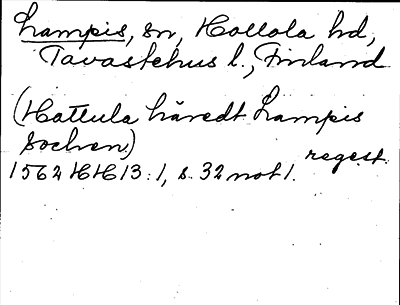 Lampis, sn, Hollola hd,
Tavastehus l., Finland
(Hattula häredt Lampis
sochen)
1562 HH 13:1, s. 32 not 1. regest.